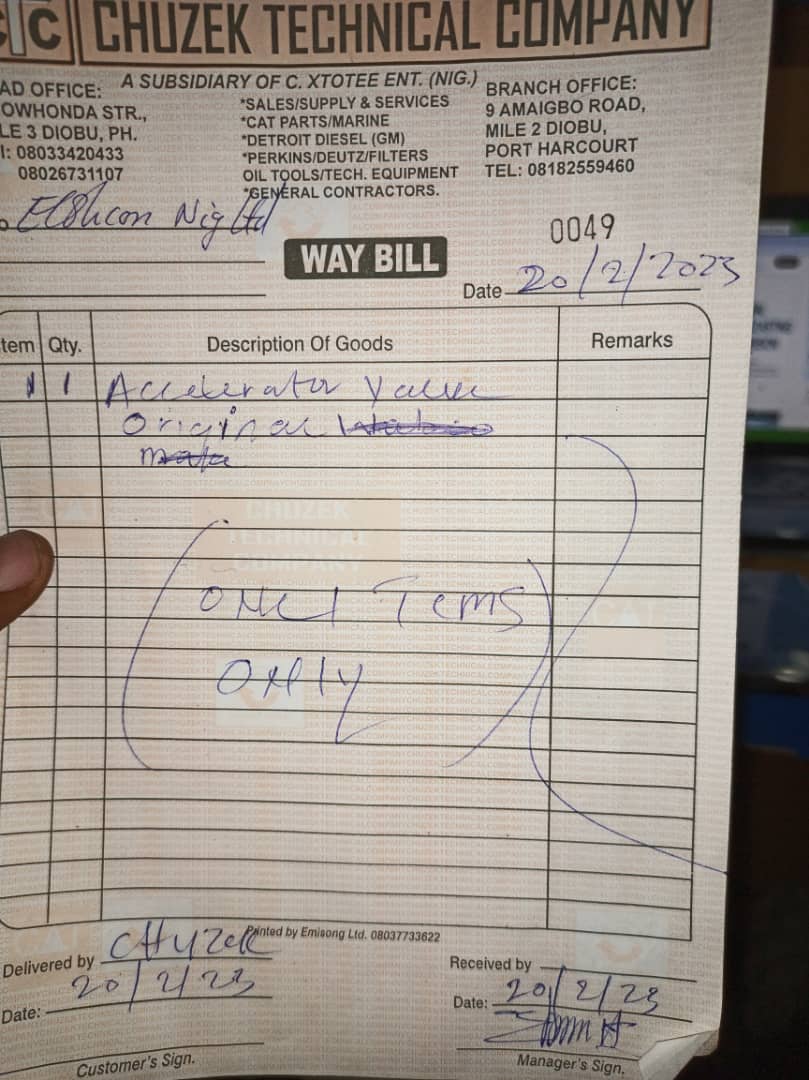 CHUZEK TECHNICAL COMPANY
A SUBSIDIARY OF C. XTOTEE ENT. (NIG.)
AD OFFICE:
OWHONDA STR.,
LE 3 DIOBU, PH.
l: 08033420433
08026731107
*SALES/SUPPLY & SERVICES
*CAT PARTS/MARINE
*DETROIT DIESEL (GM)
*PERKINS/DEUTZ/FILTERS
OIL TOOLS/TECH. EQUIPMENT
*GENERAL CONTRACTORS.
BRANCH OFFICE:
9 AMAIGBO ROAD,
MILE 2 DIOBU,
PORT HARCOURT
TEL: 08182559460
Nig Ltd
0049
WAY BILL
Date 20/2/2023
tem Qty. Description Of Goods Remarks
1 1 Accelerator Valve
Original
ONE ITEMS
ONLY
Printed by Emisong Ltd. 08037733622
Delivered by CHUZEK
Received by
Date: 20/2/23
Date: 20/2/23
Customer's Sign.
Manager's Sign.